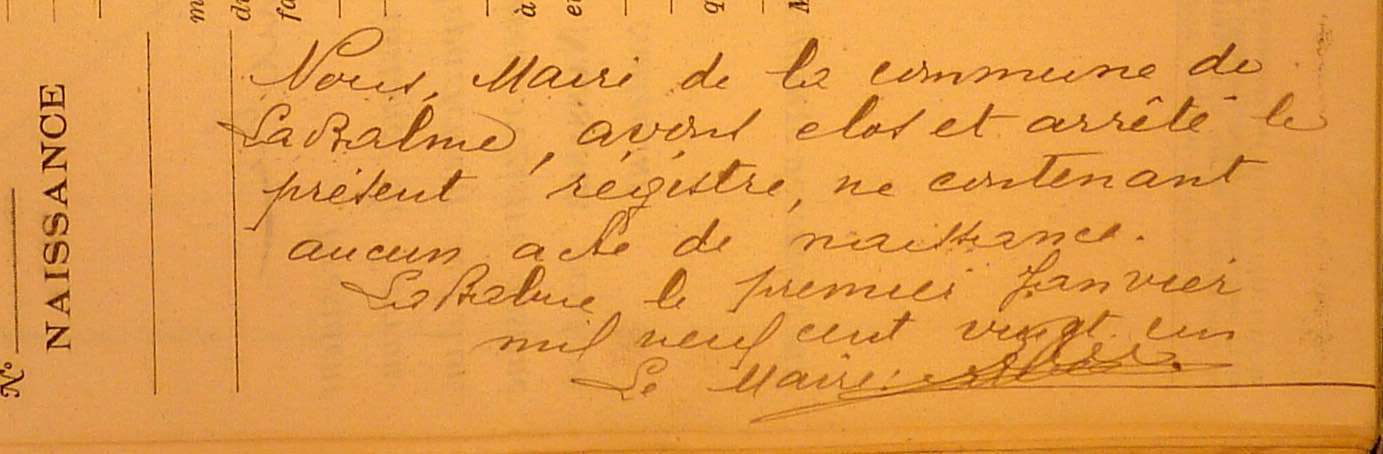 Nous, Maire de la commune de
La Balme, avons clos et arrêté le
présent régistre, ne contenant
aucun acte de naissance.
La Balme le premier Janvier
mil neuf cent vingt un
Le Maire.
N°
NAISSANCE